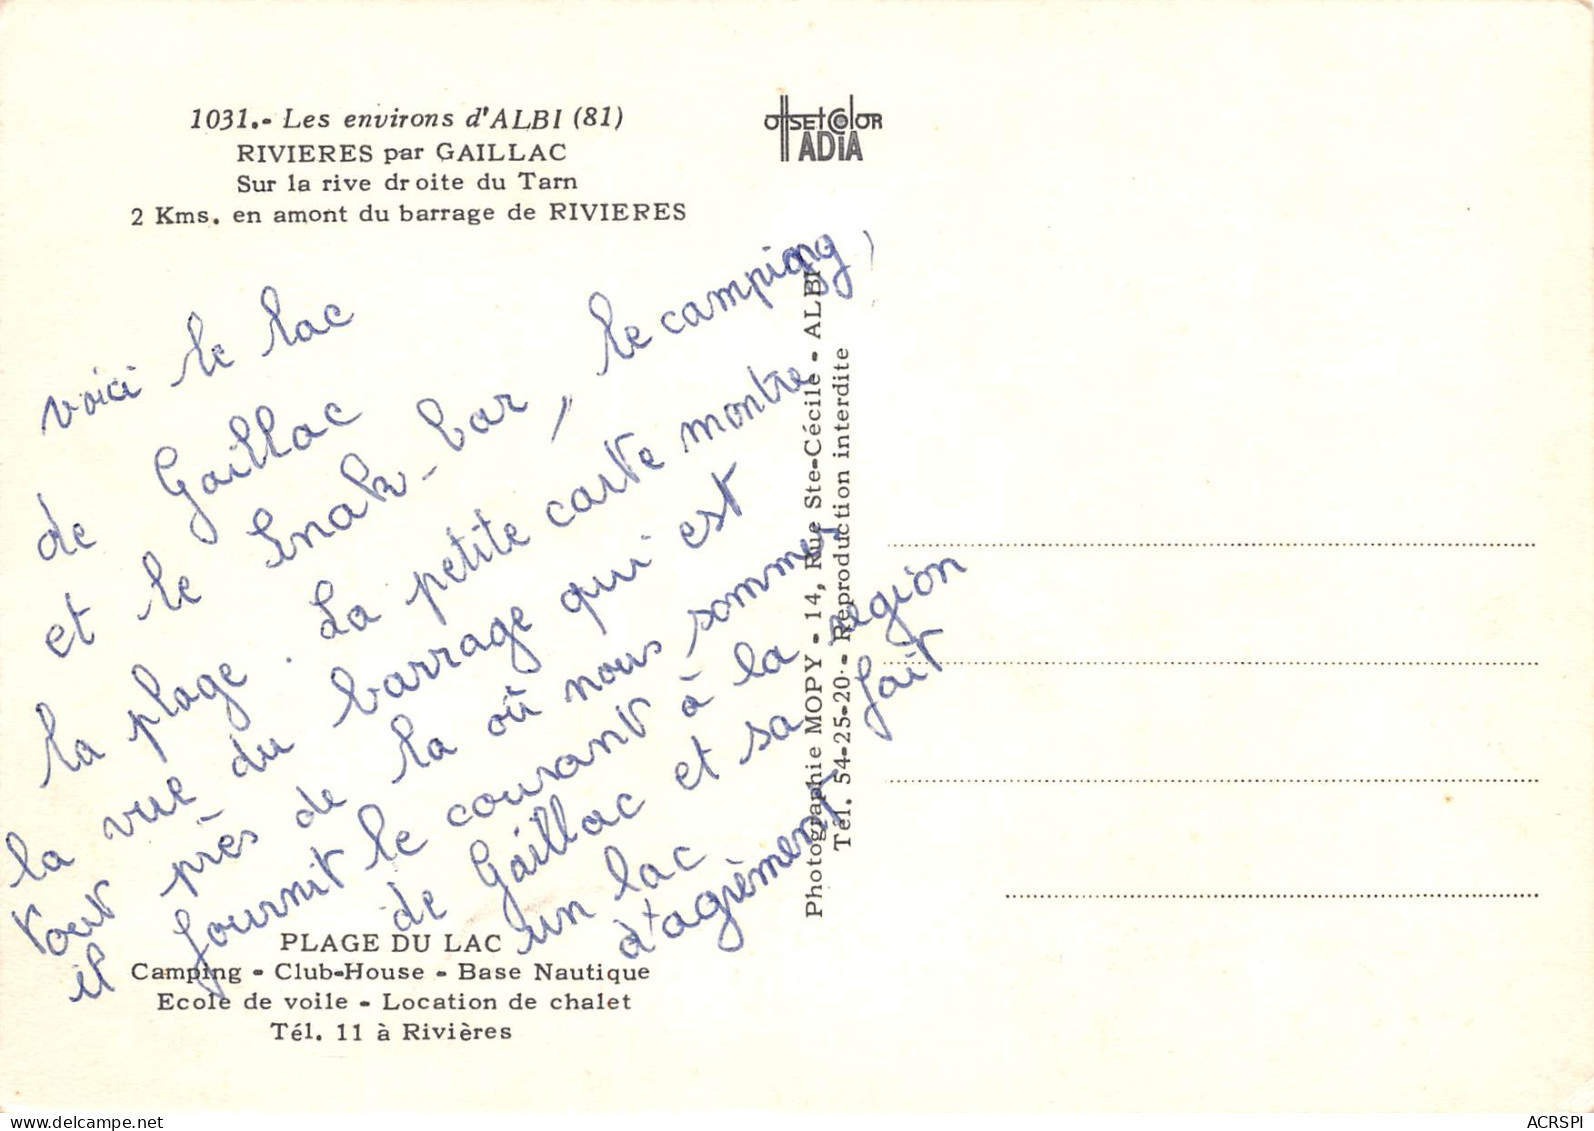 1031.- Les environs d'ALBI (81)
RIVIERES par GAILLAC
Sur la rive droite du Tarn
2 Kms. en amont du barrage de RIVIERES
OffSET COlOR
ADIA
voici le lac
de Gaillac
et le Snak-bar, le camping,
la plage. La petite carte montre
la vue du barrage qui est
tout près de la où nous sommes
il fournit le courant à la région
de Gaillac et sa fait
un lac
d'agrèment
Photographie MOPY - 14, Rue Ste-Cécile - ALBI
Tél. 54-25-20 - Reproduction interdite
PLAGE DU LAC
Camping - Club-House - Base Nautique
Ecole de voile - Location de chalet
Tél. 11 à Rivières
ACRSPI